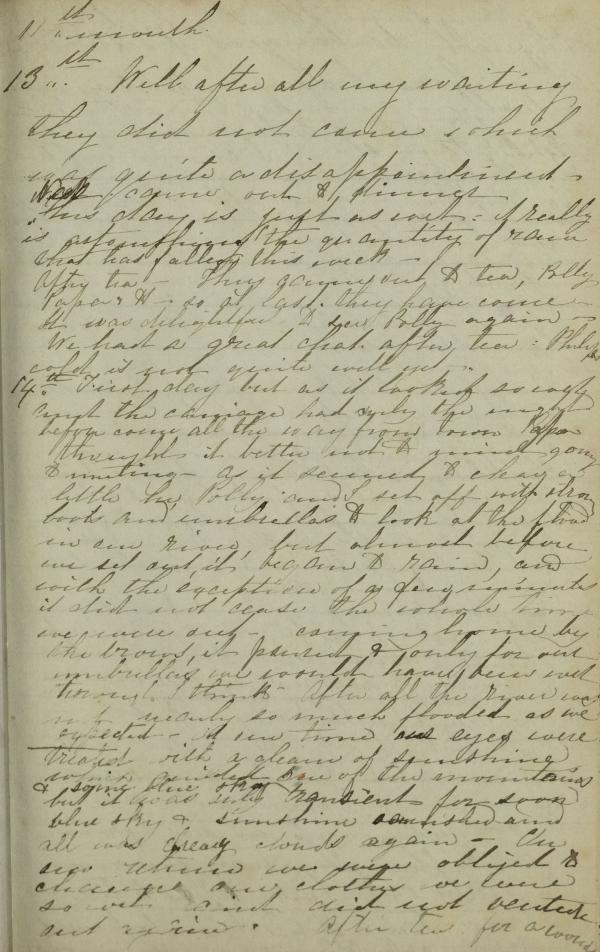 11th month.
13th. Well after all my waiting
they did not come which
was quite a disappointment -
came out to dinner
this day is just as wet - it really
is astonishing the quantity of rain
that has fallen this week -
After tea - They came out to tea, Polly
Papa & - so at last they have come -
It was delightful to see Polly again -
We had a great chat after tea : Philip's
cold is not quite well yet.
14th. First day but as it looked so wet
and the carriage had only the night
before come all the way from town Papa
thought it better not to mind going
to meeting - as it seemed to clear a
little he, Polly and I set off with strong
boots and umbrellas to look at the flood
in our river, but almost before
we set out it began to rain, and
with the exception of a few minutes
it did not cease the whole time
we were out - coming home by
the brows, it poured & only for our
umbrellas we would have been wet
through I think - After all the river was
not nearly so much flooded as we
expected - at one time our eyes were
treated with a gleam of sunshine
which one of the mountains
& some blue sky
but it was only transient for soon
blue sky & sunshine vanished and
all was heavy clouds again - On
our return we were obliged to
change our clothes we were
so wet and did not venture
out again. After tea for a